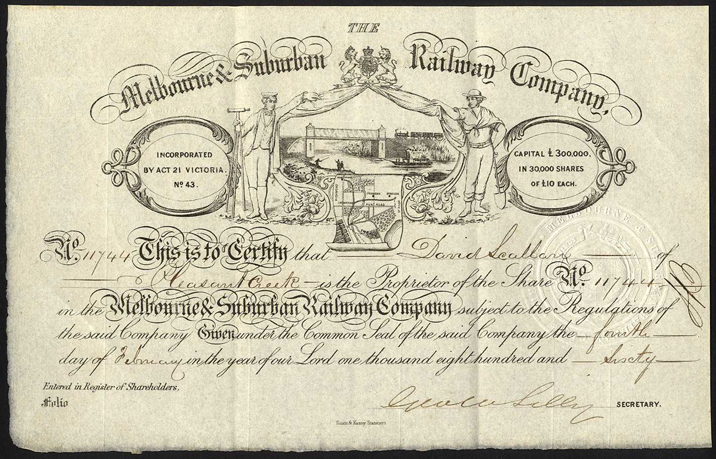 THE
Melbourne & Suburban Railway Company,
INCORPORATED
BY ACT 21 VICTORIA.
No. 43.
CAPITAL £300,000,
IN 30,000 SHARES
OF £10 EACH.
No. 11744 This is to Certify that David Scallan of
Pleasant Creek is the Proprietor of the Share No. 11744
in the Melbourne & Suburban Railway Company subject to the Regulations of
the said Company Given under the Common Seal of the said Company the fourth
day of February in the year of our Lord one thousand eight hundred and Sixty
Entered in Register of Shareholders.
Folio
SECRETARY.